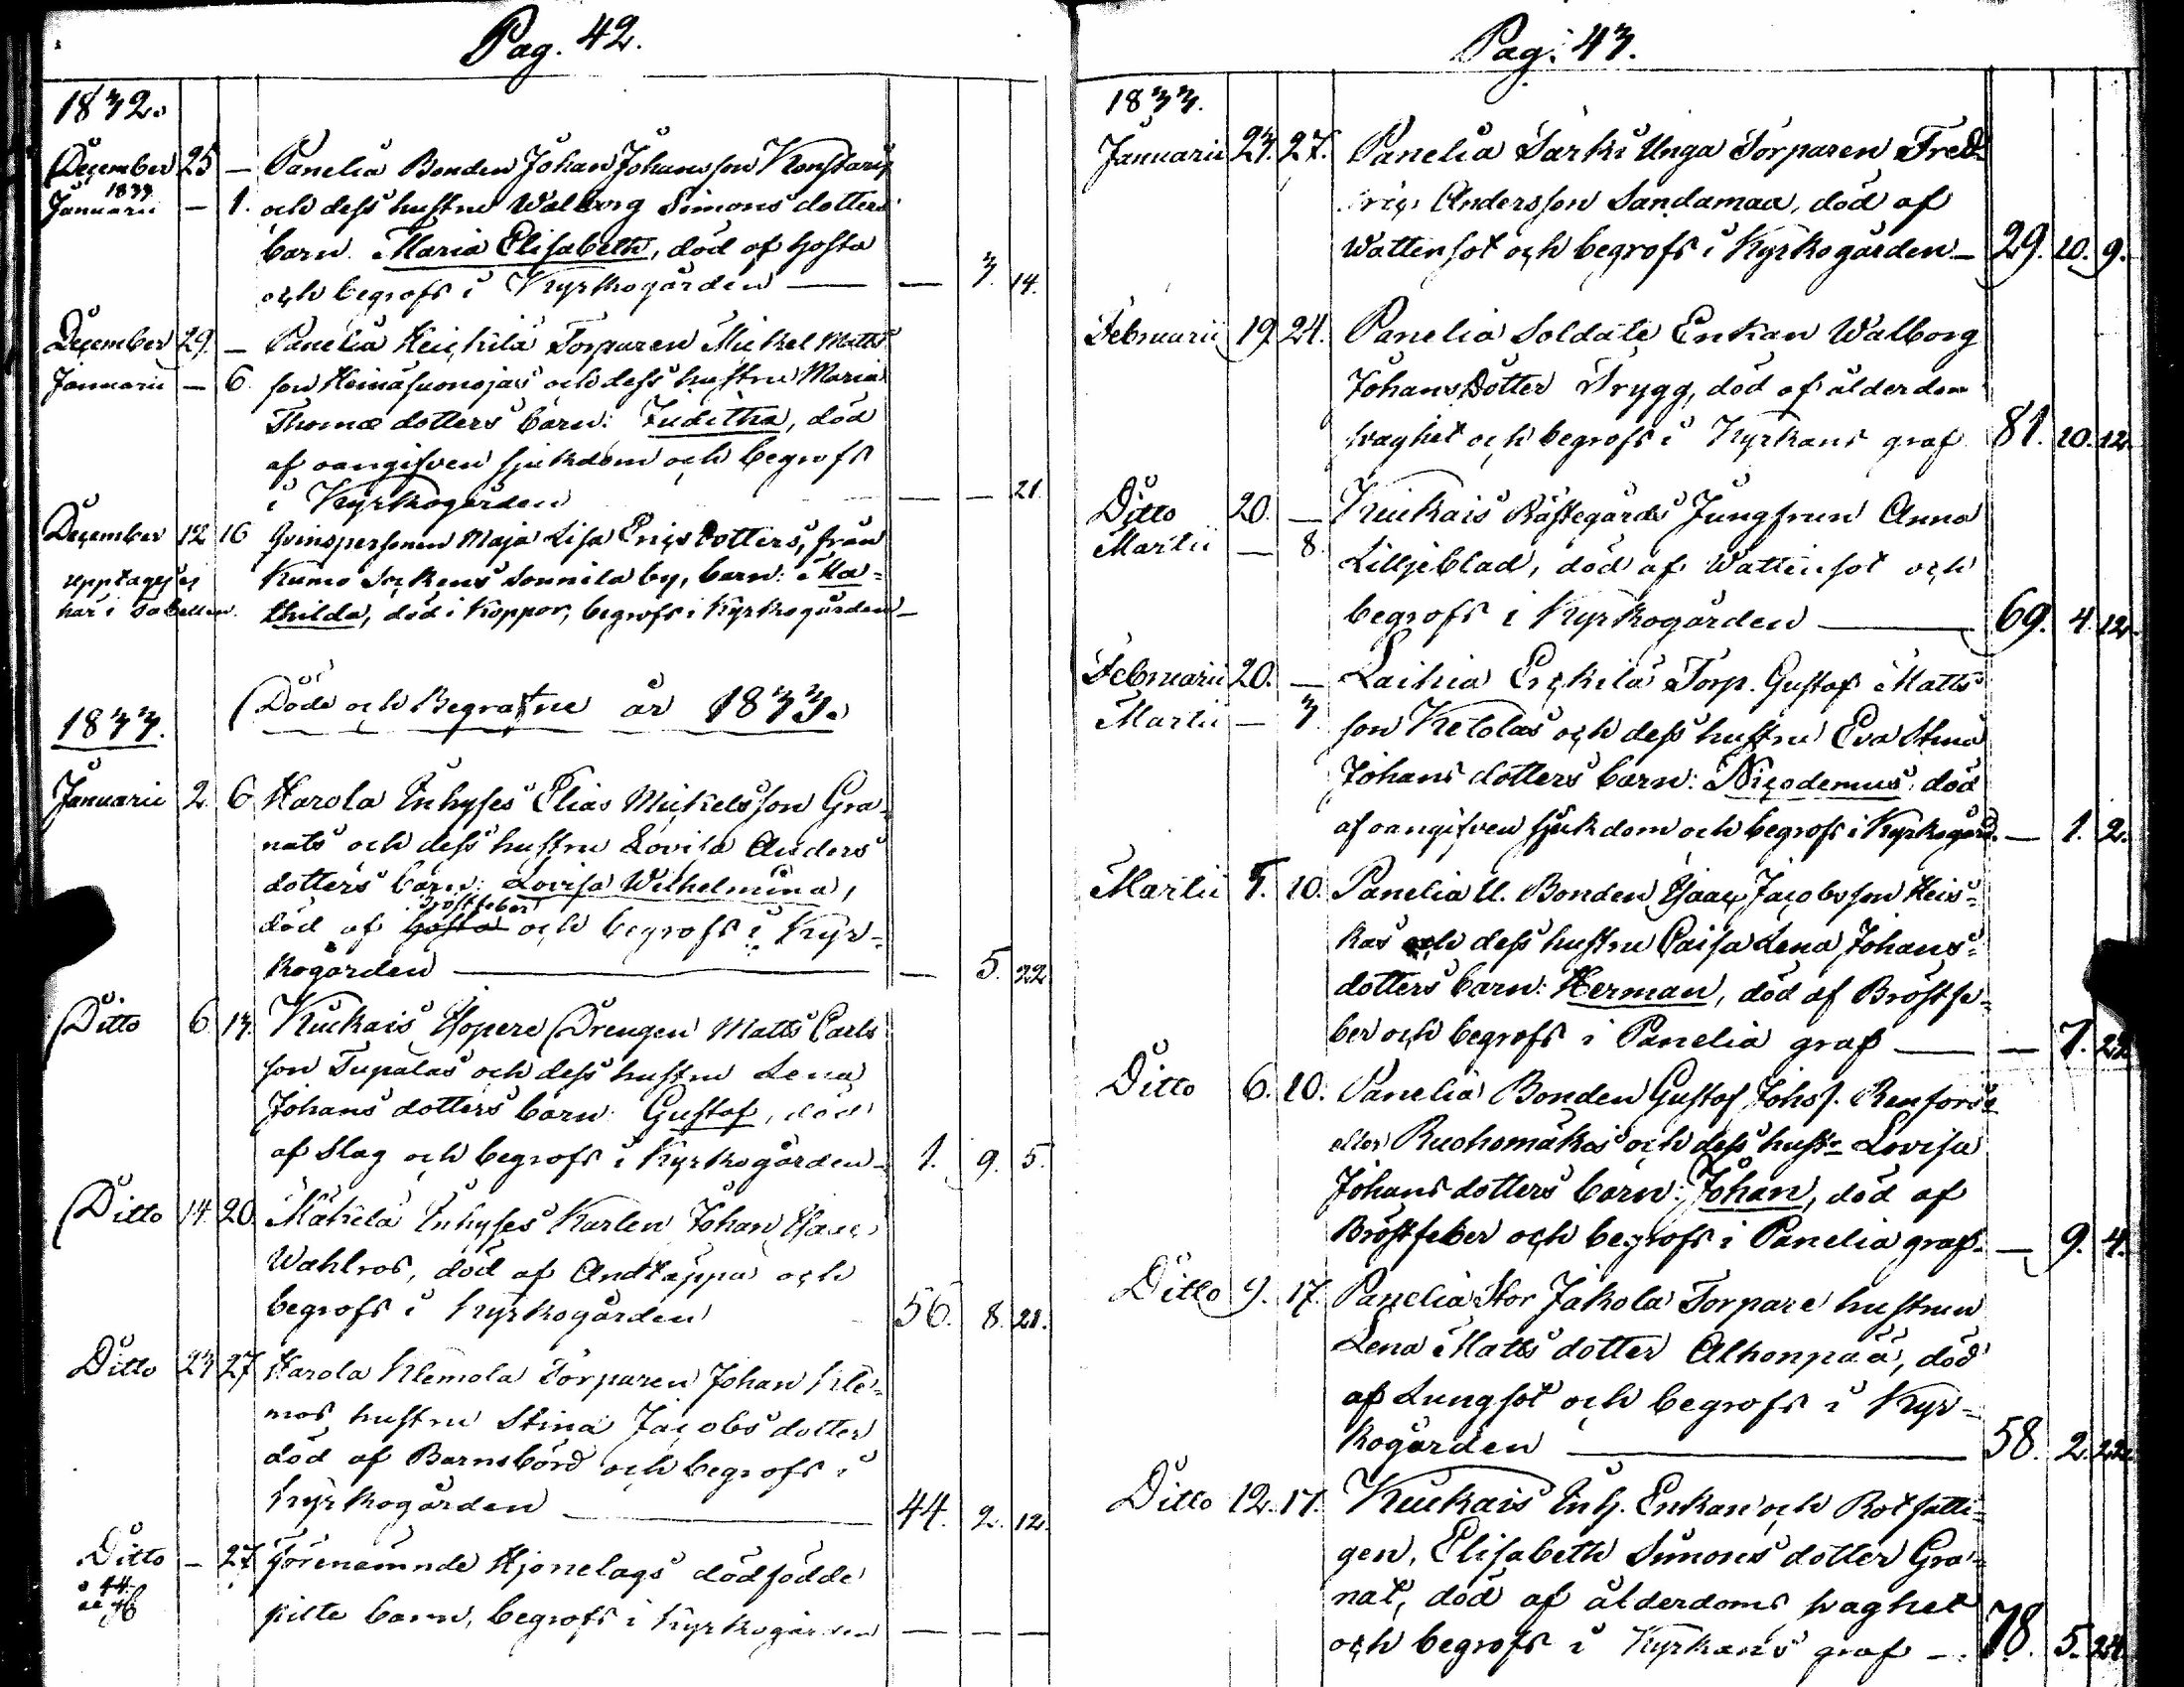 Pag. 42.
1832.
December 25 — Panelia Bonden Johan Johansson Konstari
1833
Januarii — 1. och dess hustru Walborg Simons dotters
barn. Maria Elisabeth, död af hosta
och begrofs i Kyrkogården — — 3. 14.
December 29. — Panelia Heickilä Torparen Mickel Matts
Januarii — 6. son Heinäsuonojas och dess hustru Maria
Thomæ dotters barn: Juditha, död
af oangifven sjukdom och begrofs
i Kyrkogården — — 21.
December 12 16 Qvinspersonen Maja Lisa Erics dotters, från
upptages ej Kumo Sockens Sonnila by, barn: Ma-
här i Tabellen. thilda, död i Koppor, begrofs i Kyrkogården —
Döde och Begrafne år 1833.
1833.
Januarii 2. 6 Harola Inhyses Elias Mickelsson Gra-
nats och dess hustru Lovisa Anders
dotters barn: Lovisa Wilhelmina,
bröstfeber
död af hosta och begrofs i Kyr-
kogården — — 5. 22.
Ditto 6. 13. Kiukais Hopere Drengen Matts Carls
son Tupalas och dess hustru Lena
Johans dotters barn: Gustaf, död
af Slag och begrofs i Kyrkogården — 1. 9. 5.
Ditto 14. 20. Mäkilä Inhyses Karlen Johan Isacs
Wahlros, död af Andtäppa och
begrofs i Kyrkogården 56. 8. 21.
Ditto 23 27 Harola Klemola Torparen Johan Kle-
mos hustru Stina Jacobs dotter
död af Barnsbörd och begrofs i
Kyrkogården — 44. 2. 12.
Ditto — 27 Förenämnde Hjonelags dödfödde
pilte barn, begrofs i Kyrkogården — — —
Pag. 43.
1833.
Januarii 23. 27. Panelia Särki Unga Torparen Fred-
ric Andersson Sandamaa, död af
Wattensot och begrofs i Kyrkogården — 29. 10. 9.
Februarii 19. 24. Panelia Soldate Enkan Walborg
Johans Dotter Trygg, död af ålderdom
svaghet och begrofs i Kyrkans graf 81. 10. 12.
Ditto 20. — Kiukais Råstegårds Jungfrun Anna
Martii — 8. Lilljeblad, död af Wattensot och
begrofs i Kyrkogården — 69. 4. 12.
Februarii 20. — Laihia Erckilä Torp. Gustaf Matts
Martii — 3 son Ketolas och dess hustru Eva Stina
Johans dotters barn: Nicodemus, död
af oangifven sjukdom och begrofs i Kyrkogård. — 1. 2.
Martii 5. 10. Panelia U. Bonden Isaac Jacobsson Heis-
kas och dess hustru Caisa Lena Johans-
dotters barn: Herman, död af Bröstfe-
ber och begrofs i Panelia graf — — 7. 22.
Ditto 6. 10. Panelia Bonden Gustaf Johss. Renfors
eller Ruohomäkis och dess hustr. Lovisa
Johans dotters barn: Johan, död af
Bröstfeber och begrofs i Panelia graf. — 9. 4.
Ditto 9. 17. Panelia Stor Jakola Torpare hustrun
Lena Matts dotter Alhonpää, död
af Lungsot och begrofs i Kyr-
kogården — 58. 2. 22.
Ditto 12. 17. Kiukais Inh. Enkan och Rotfatti-
gen, Elisabeth Simons dotter Gra-
nat, död af ålderdoms svaghet
och begrofs i Kyrkans graf — 78. 5. 24.